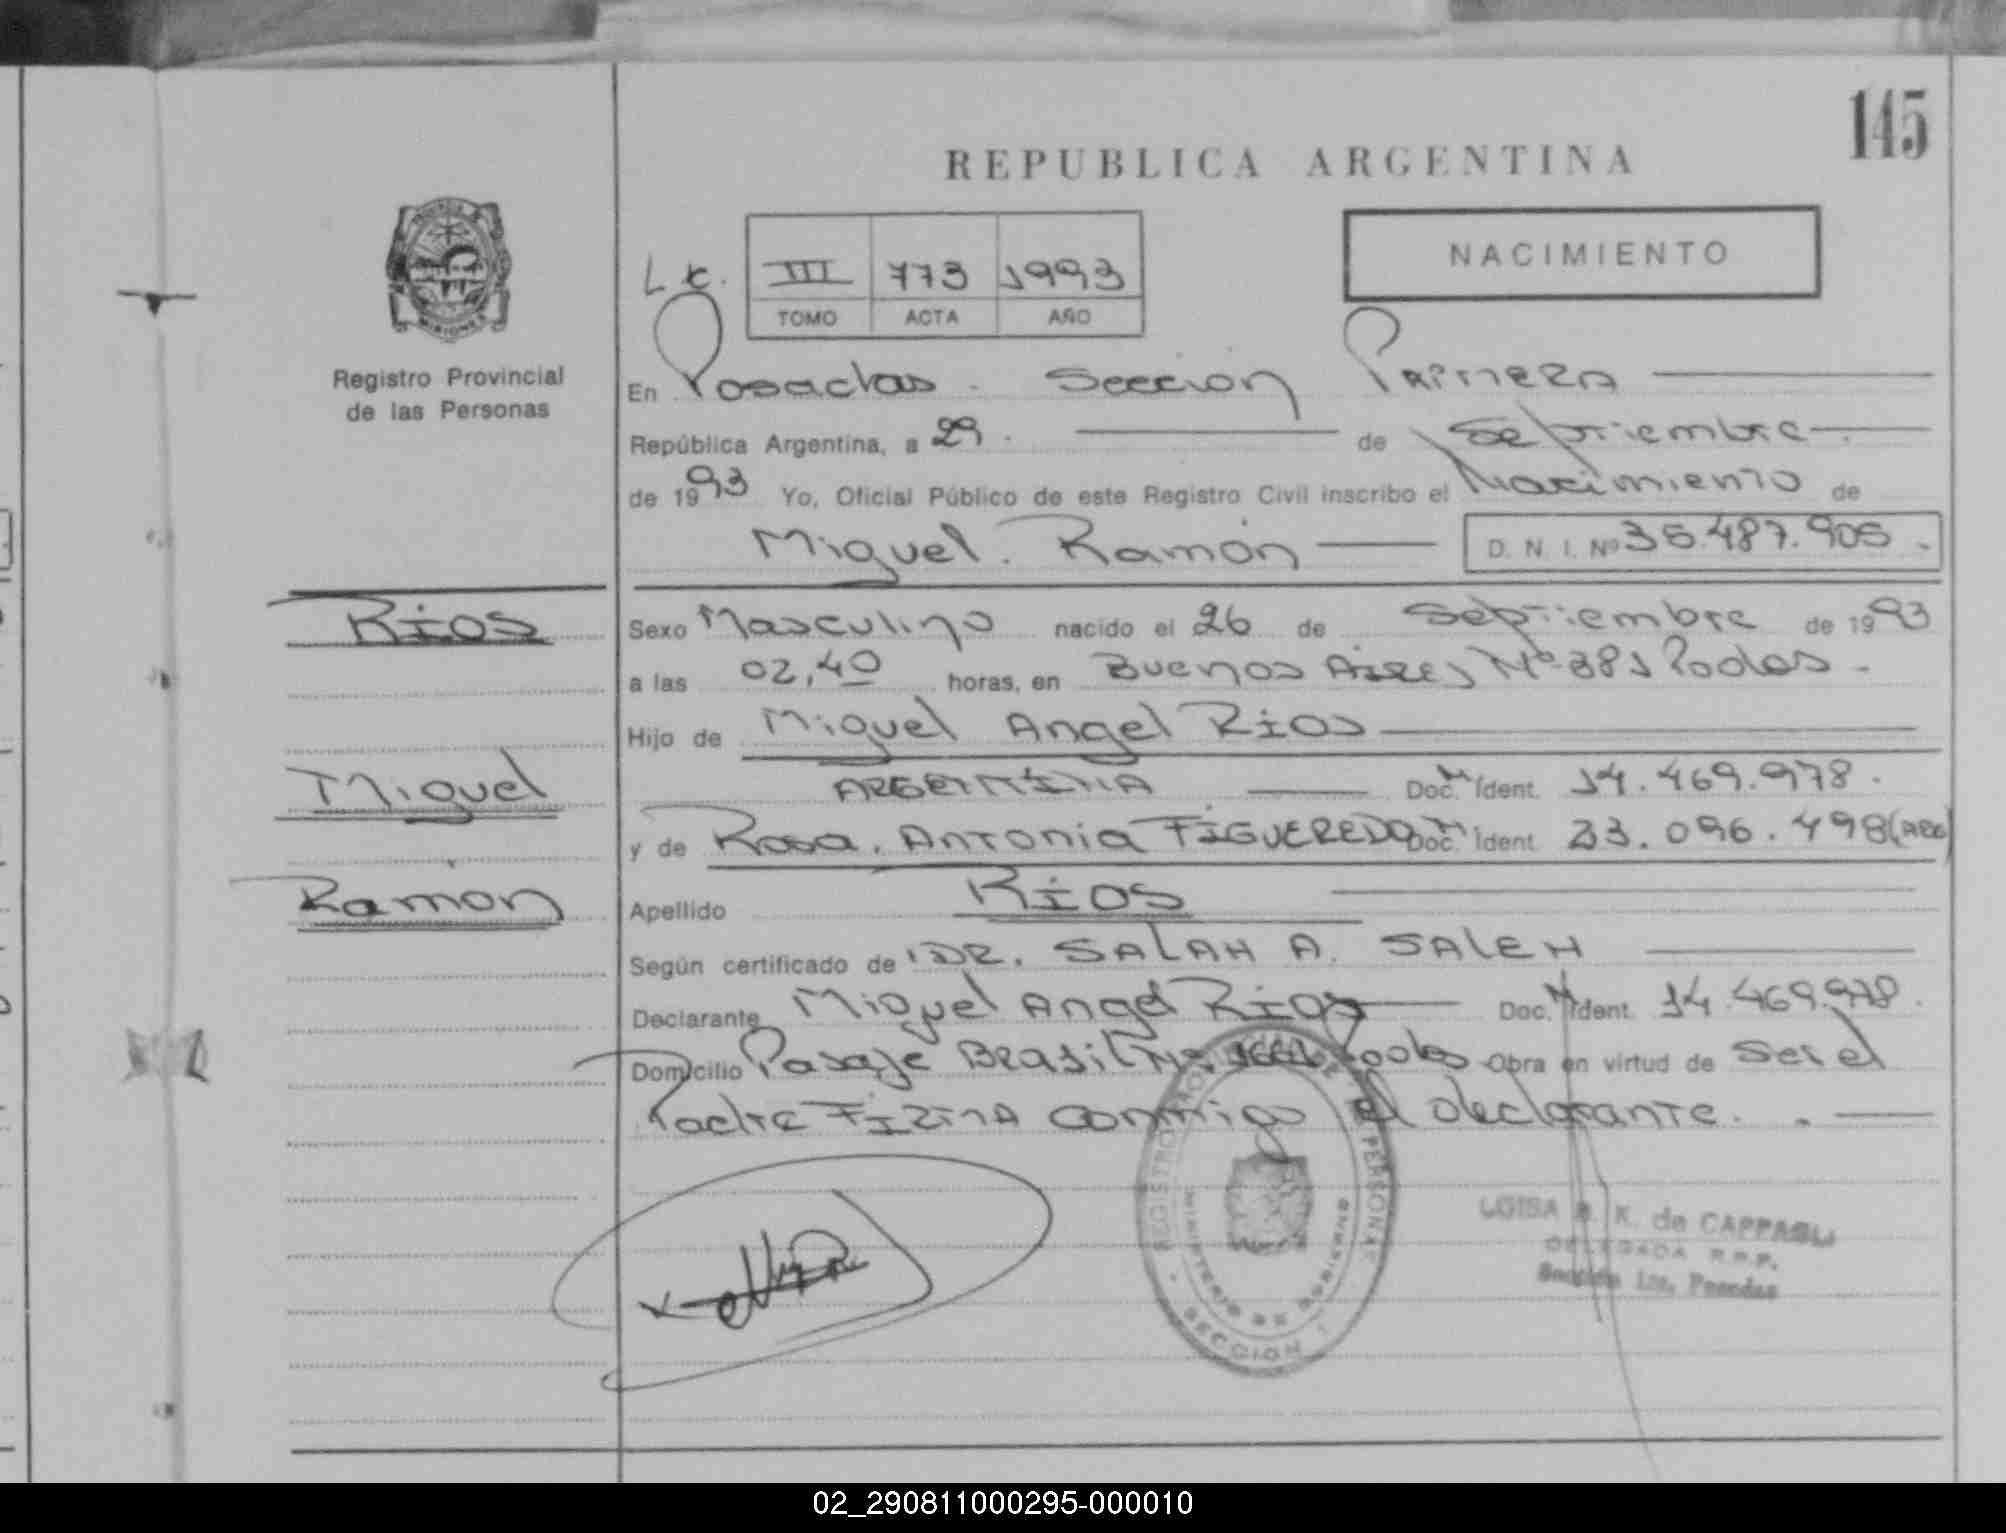 145
REPUBLICA ARGENTINA
NACIMIENTO
III 773 1993
TOMO ACTA AÑO
MISIONES
Registro Provincial
de las Personas
En Posadas. Sección Primera
República Argentina, a 29. de Septiembre.
de 1993 Yo, Oficial Público de este Registro Civil inscribo el Nacimiento de
Miguel. Ramón D. N. I. Nº 35.487.905.
Ríos
Sexo Masculino nacido el 26 de Septiembre de 1993
a las 02,40 horas, en Buenos Aires Nº 381 Podas.
Hijo de Miguel Angel Ríos
Miguel
ARGENTINA Doc. M Ident. 14.469.978.
y de Rosa. Antonia FIGUEREDO Doc. M Ident. 23.096.498 (ARG)
Ramón
Apellido Ríos
Según certificado de DR. SALAH A. SALEH
Declarante Miguel Angel Ríos Doc. M Ident. 14.469.978.
Domicilio Pasaje Brasil Nº Podas Obra en virtud de Ser el
Padre FIRMA conmigo el declarante.
REGISTRO PROVINCIAL DE LAS PERSONAS
MINISTERIO DE GOBIERNO
SECCION 1
LUISA K. de CAPPAGLI
DELEGADA R.P.P.
Sección 1ra. Posadas
02_290811000295-000010